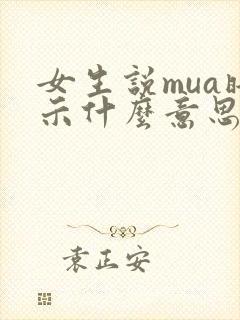 女生說mua
示什麼意思
袁正安